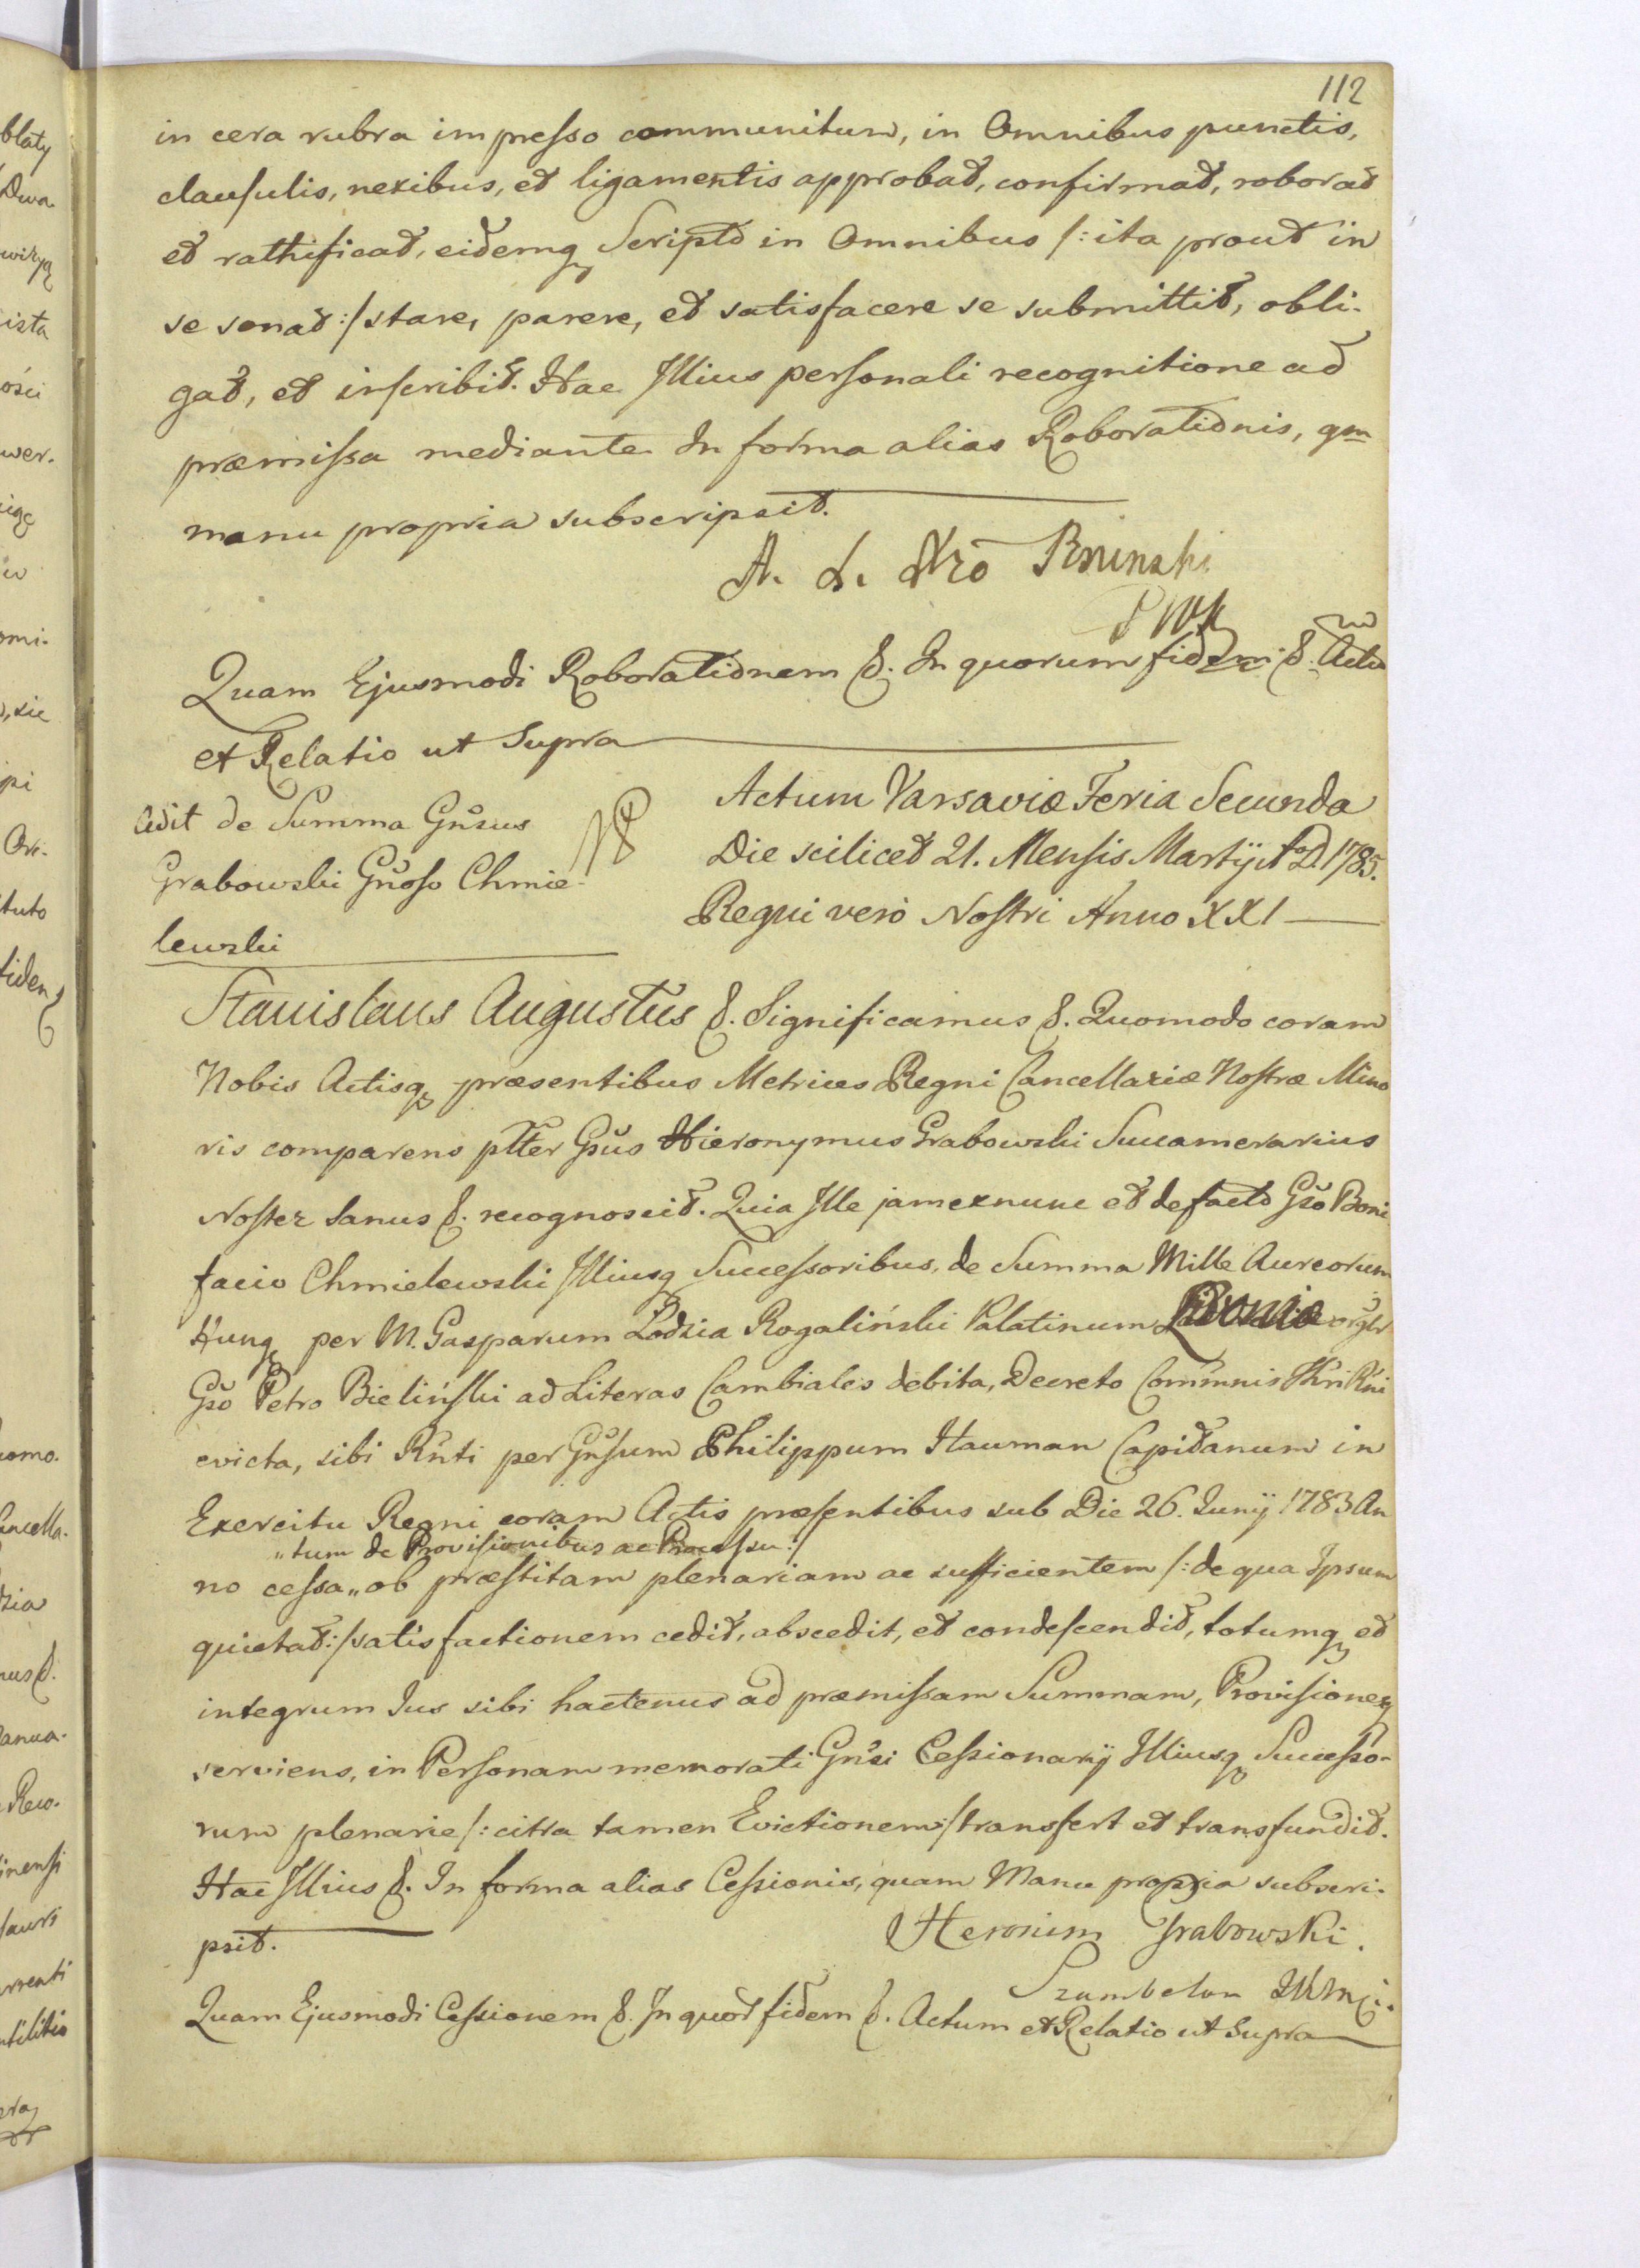 112
in cera rubra impresso communitum, in Omnibus punctis,
clausulis, nexibus, et ligamentis approbat, confirmat, roborat
et rathificat, eidemq Scripto in Omnibus /: ita prout in
se sonat :/ stare, parere, et satisfacere se submittit, obli-
gat, et inscribit. Hac Illius personali recognitione ad
præmissa mediante In forma alias Roborationis, qm
manu propria subscripsit.
A. L. Hro Bninski
Quam Ejusmodi Roborationem &. In quorum fidem &. Actum
et Relatio ut Supra
Cedit de Summa Gnsus
Grabowski Gnoso Chmie-
lewski
Actum Varsaviæ Feria Secunda
Die scilicet 21. Mensis Martij AD. 1785.
Regni vero Nostri Anno XXI
Stanislaus Augustus &. Significamus &. Quomodo coram
Nobis Actisq præsentibus Metrices Regni Cancellariæ Nostræ Mino
ris comparens plter Gsus Hieronymus Grabowski Succamerarius
Noster Sanus &. recognoscit. Quia Ille jam exnunc et de facto Gso Boni
facio Chmielewski Illiusq Successoribus, de Summa Mille Aureorum
Hung per M. Gasparum Łodzia Rogaliński Palatinum Livoniæ orglr
Gso Petro Bieliński ad Literas Cambiales debita, Decreto Commnis Thri Rni
evicta, sibi Rnti per Gnsum Philippum Hauman Capitanum in
Exercitu Regni coram Actis præsentibus sub Die 26. Junij 1783 An
„tum de Provisionibus ac Processu :/
no cessa „ ob præstitam plenariam ac sufficientem /: de qua Ipsum
quietat :/ satisfactionem cedit, abscedit, et condescendit, totumq et
integrum Jus sibi hactenus ad præmissam Summam, Provisionesq
serviens, in Personam memorati Gnsi Cessionarij Illiusq Successo-
rum plenarie /: citra tamen Evictionem :/ transfert et transfundit.
Hac Illius &. In forma alias Cessionis, quam Manu propria subscri-
psit.
Heronim Grabowski.
Szambelan JKMci.
Quam Ejusmodi Cessionem &. In quor fidem &. Actum et Relatio ut Supra